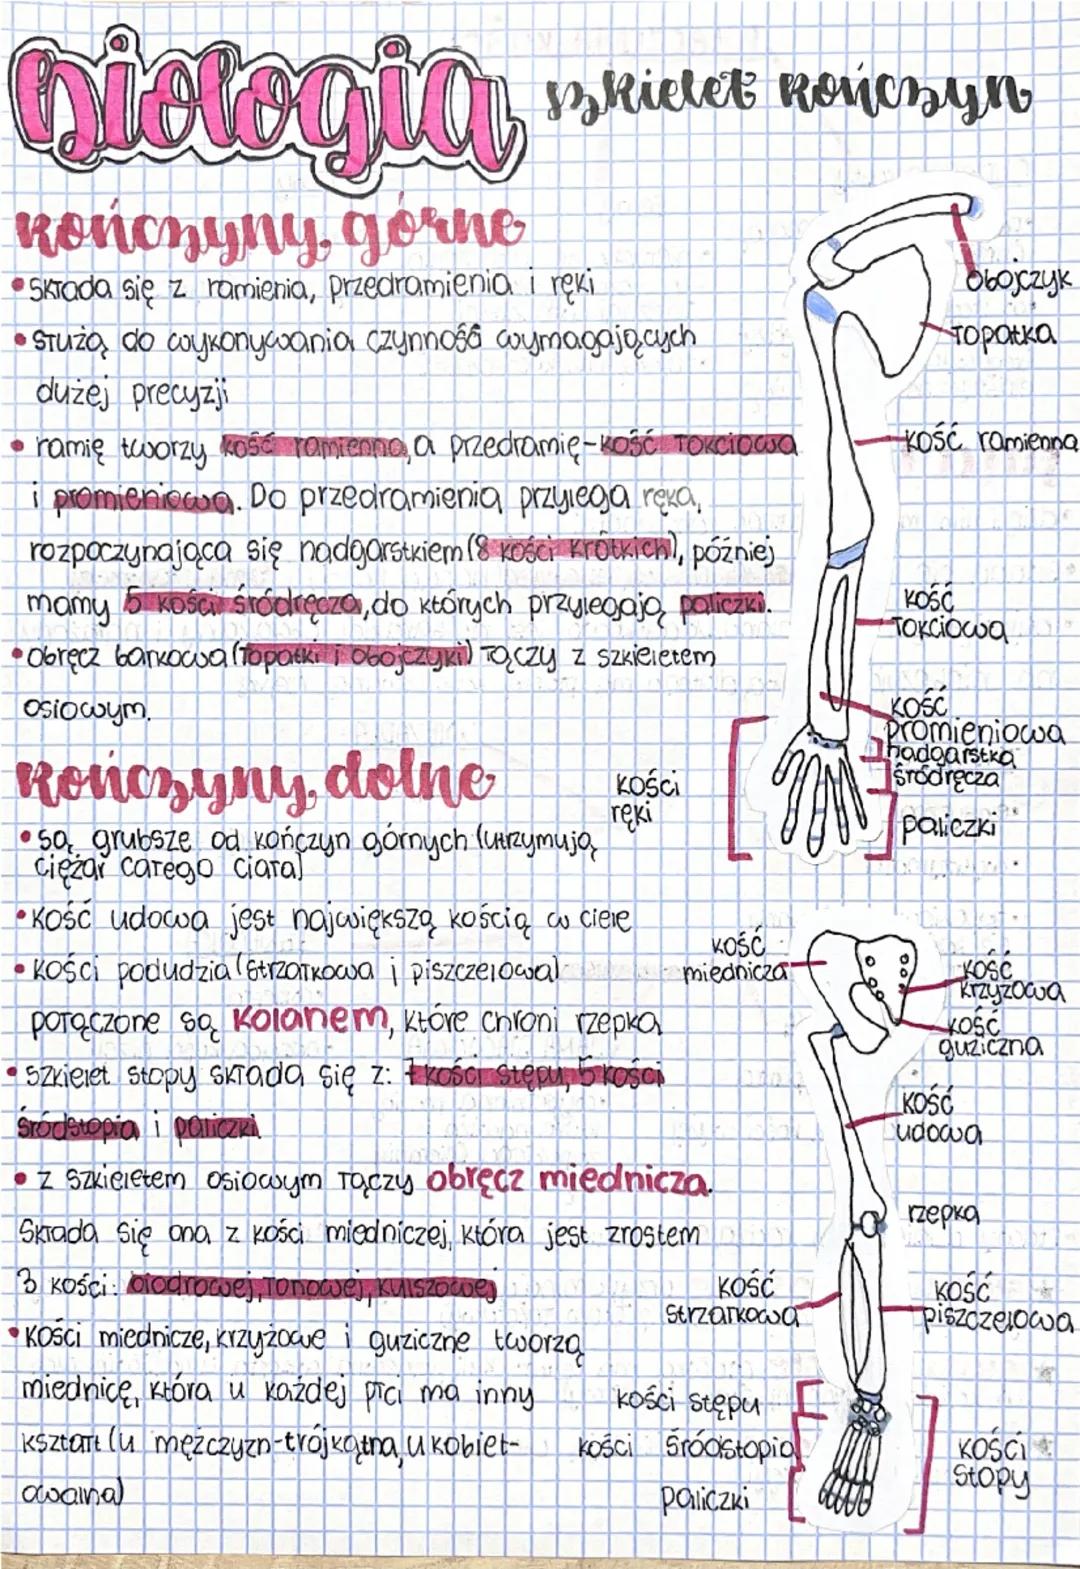 Biologia szkielet kończyn
kończyny górne
• składa się z ramienia, przedramienia i ręki
• służą do wykonywania czynność wymagających
dużej precyzji
• ramię tworzy kość ramienna, a przedramię-kość łokciowa
i promieniowa. Do przedramienia przylega ręka,
rozpoczynająca się nadgarstkiem (8 kości krótkich), później
mamy 5 kości śródręcza, do których przylegają paliczki.
• obręcz barkowa (łopatki i obojczyki) łączy z szkieletem
osiowym.
obojczyk
łopatka
kość ramienna
kość
łokciowa
kość
promieniowa
nadgarstka
śródręcza
paliczki
kości
ręki
kończyny dolne
• są grubsze od kończyn górnych (utrzymują
ciężar całego ciała)
• kość udowa jest największą kością w ciele
• kości podudzia (strzałkowa i piszczelowa)
połączone są kolanem, które chroni rzepka
• szkielet stopy składa się z: 7 kości stępu, 5 kości
śródstopia i paliczki
• z szkieletem osiowym łączy obręcz miednicza.
Składa się ona z kości miedniczej, która jest zrostem
3 kości: biodrowej, łonowej, kulszowej
• kości miednicze, krzyżowe i guziczne tworzą
miednicę, która u każdej płci ma inny
kształt (u mężczyzn-trójkątna, u kobiet-
owalna)
kość
miednicza
kość
krzyżowa
kość
guziczna
kość
udowa
rzepka
kość
strzałkowa
kość
piszczelowa
kości stępu
kości śródstopia
paliczki
kości
stopy